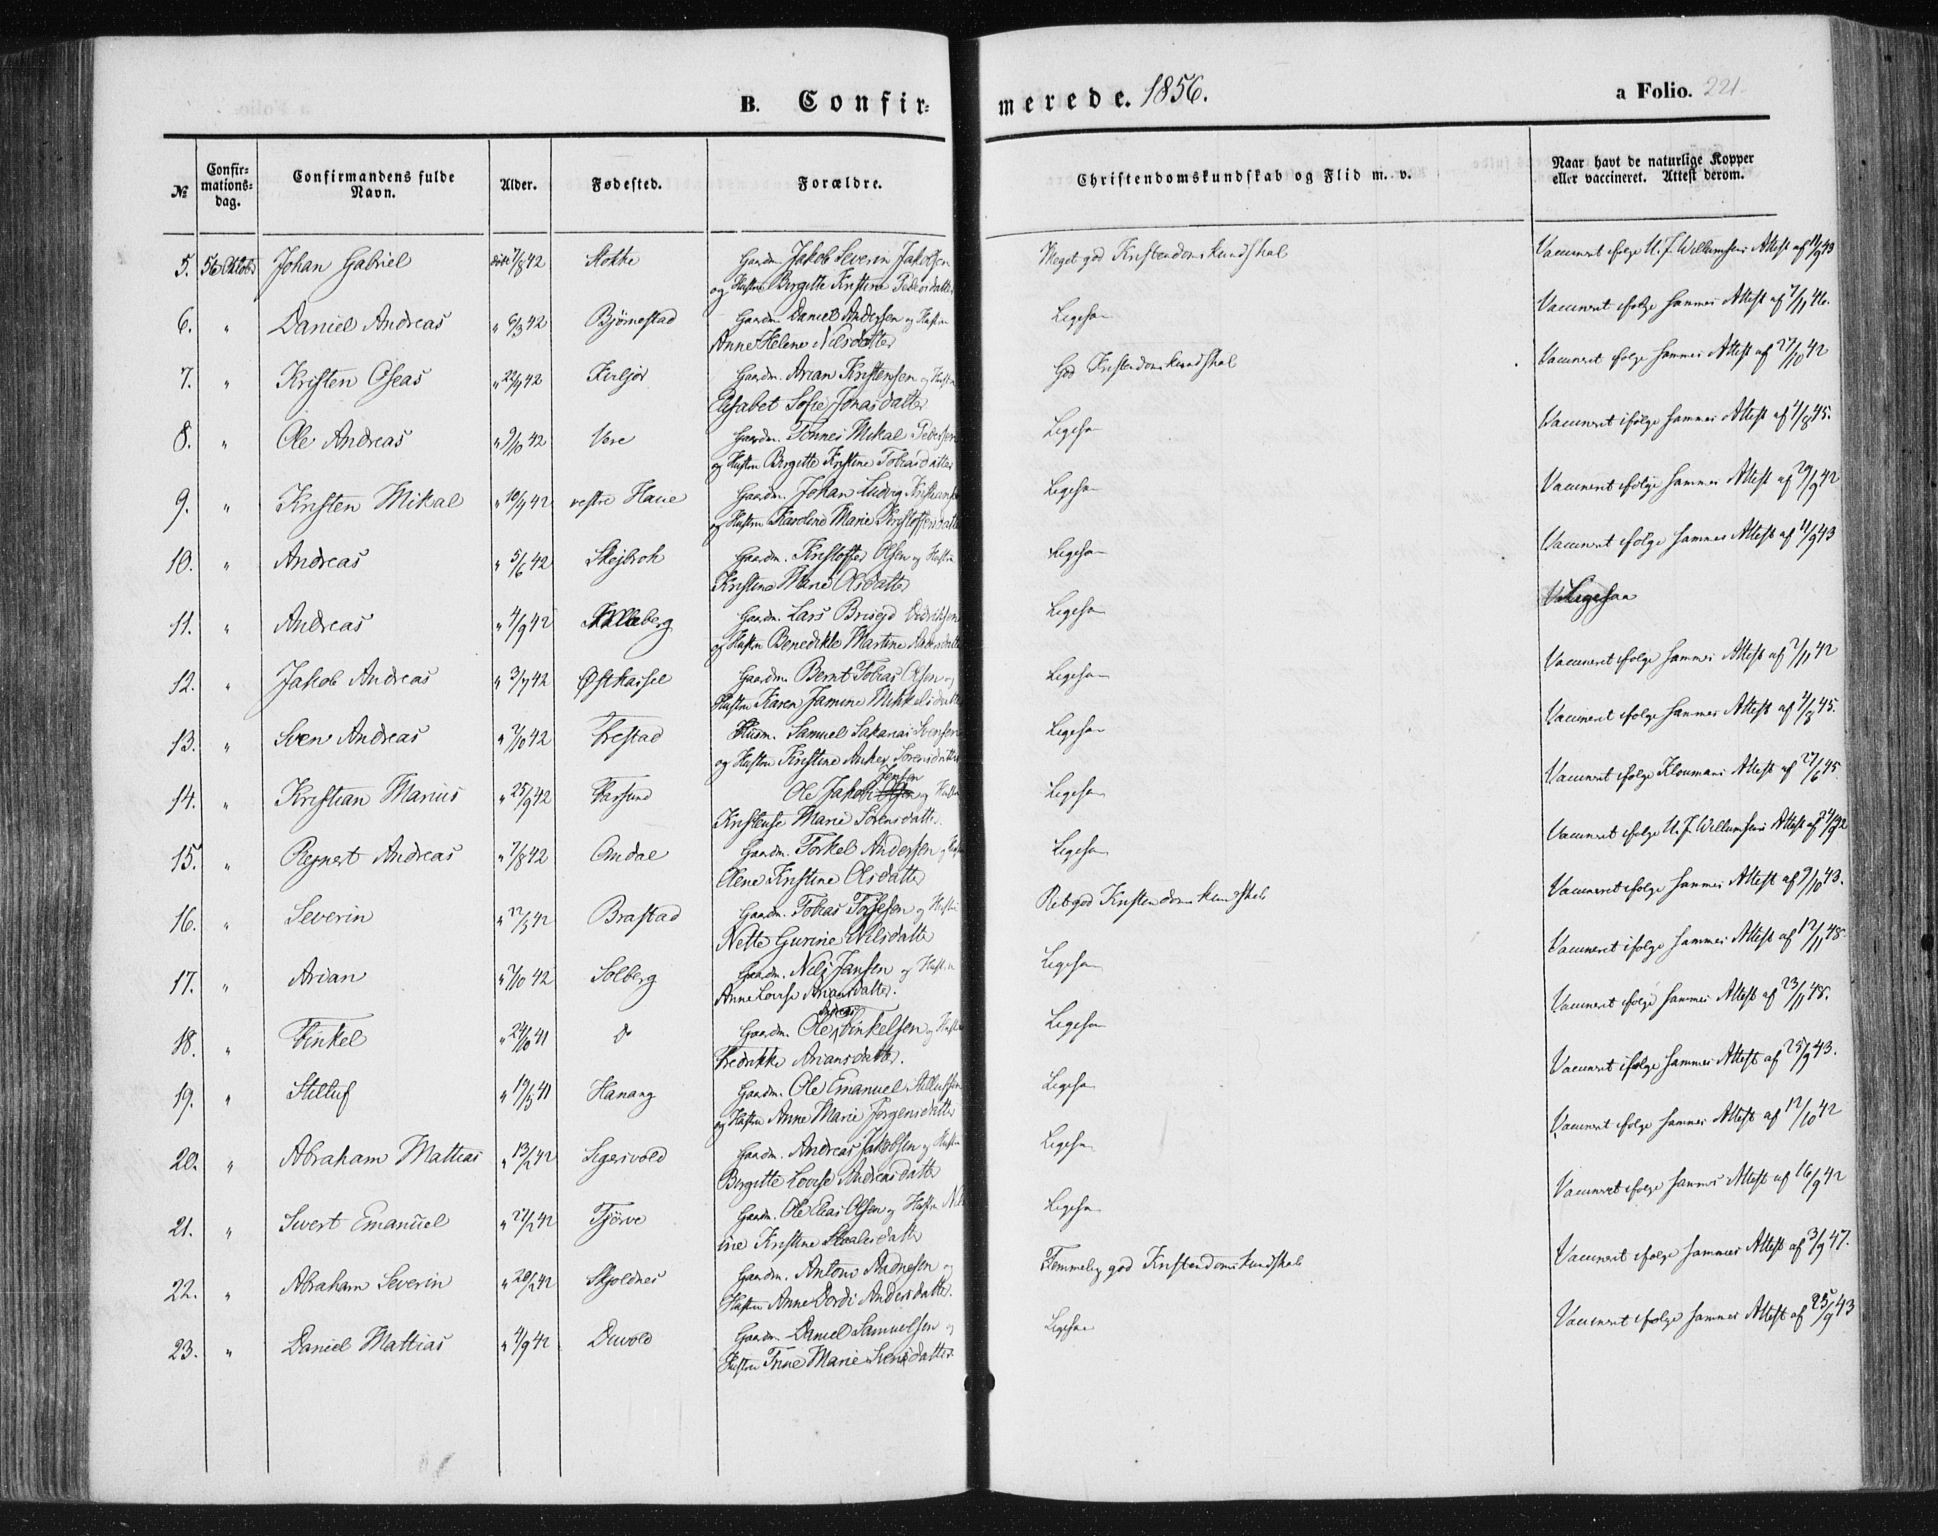 B. Confir-
merede. 1856.
a Folio. 221.
№
Confir-
mations-
dag.
Confirmandens fulde
Navn.
Alder.
Fødested.
Forældre.
Christendomskundskab og Flid m. v.
Naar havt de naturlige Kopper
eller vaccineret. Attest derom.
5. Johan Gabriel 7/8 42 Stokke Gaardm. Jakob Severin Jakobsen Meget god Kristendomskundskab Vaccineret ifølge U. J. Willumsens Attest af 11/9 43
og Hustru Birgitte Kristine Pedersdatter
6. " Daniel Andreas " 6/3 42 Bjørnestad Gaardm. Daniel Andersen og Hustru Ligesaa Vaccineret ifølge sammes Attest af 7/11 46.
Anne Helene Nilsdatter
7. " Kristen Oseas " 22/9 42 Gaardm. Arian Kristensen og Hustru God Kristendomskundskab Vaccineret ifølge sammes Attest af 27/10 42
Elisabet Sofie Jonasdatter
8. " Ole Andreas " 9/10 42 Vere Gaardm. Tønnes Mikal Pedersen Ligesaa Vaccineret ifølge sammes Attest af 4/8 45.
og Hustru Birgitte Kristine Tobiasdatter
9. " Kristen Mikal " 10/7 42 vestre Haue Gaardm. Johan Ludvig Ligesaa Vaccineret ifølge sammes Attest af 29/9 42
og Hustru Karoline Marie
10. " Andreas " 5/6 42 Skejbrok Gaardm. Kristoffer Olsen og Hustru Ligesaa Vaccineret ifølge sammes Attest af 11/9 43
Kristine Marie Olsdatter
11. " Andreas " 4/9 42 Gaardm. Lars Brisejd Didriksen Ligesaa Ligesaa
og Hustru Benedikte Martine
12. " Jakob Andreas " 3/7 42 Østhassel Gaardm. Bernt Tobias Olsen og Ligesaa Vaccineret ifølge sammes Attest af 7/11 42
Hustru Karen Jamine Mikkelsdatter
13. " Sven Andreas " 7/10 42 Frestad Husm. Samuel Sakarias Svensen Ligesaa Vaccineret ifølge sammes Attest af 4/8 45.
og Hustru Kristine Sørensdatter
14. " Kristian Marius " 25/9 42 Farsund Ole Jakob Jensen og Hustru Ligesaa Vaccineret ifølge Kloumans Attest af 27/6 45.
Kristense Marie Sørensdatter.
15. " Rejnert Andreas " 7/8 42 Omdal Gaardm. Torkel Andersen og Hustru Ligesaa Vaccineret ifølge U. J. Willumsens Attest af 24/9 42
Olene Kristine Olsdatter
16. " Severin " 22/5 42 Brastad Gaardm. Tobias og Hustru god Kristendomskundskab Vaccineret ifølge sammes Attest af 9/10 43.
Nette Gurine Nilsdatter
17. " Arian " 7/10 42 Solberg Gaardm. Nils Jansen og Hustru Ligesaa Vaccineret ifølge sammes Attest af 12/11 48.
Anne Lovise Ariansdatter.
18. " Finkel " 24/10 41 do Gaardm. Ole Finkelsen og Hustru Ligesaa Vaccineret ifølge sammes Attest af 23/11 48.
Fredrikke Ariansdatter.
19. " Stilluf " 19/5 41 Hanang Gaardm. Ole Emanuel Stillufsen Ligesaa Vaccineret ifølge sammes Attest af 25/9 43.
og Hustru Anne Marie Jørgensdatter
20. " Abraham Mattias " 13/2 42 Segersvold Gaardm. Andreas Jakobsen og Hustru Ligesaa Vaccineret ifølge sammes Attest af 12/10 42
Birgitte Lovise Andreasdatter
21. " Sivert Emanuel " 27/2 42 Tjørve Gaardm. Ole Elias Olsen og Hustru Ligesaa Vaccineret ifølge sammes Attest af 16/9 42
ine Kristine
22. " Abraham Severin " 20/2 42 Skjoldnes Gaardm. Antoni Andresen og Temmelig god Kristendomskundskab Vaccineret ifølge sammes Attest af 3/9 47.
Hustru Anne Dordi Andersdatter.
23. " Daniel Mattias " 4/9 42 Duvold Gaardm. Daniel Samuelsen og Ligesaa Vaccineret ifølge sammes Attest af 25/9 43
Hustru Trine Marie Svensdatter